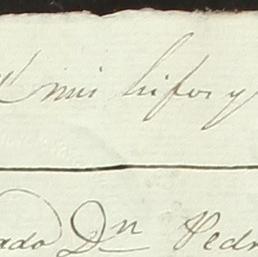 mis hijos y
ado Dn Pedr